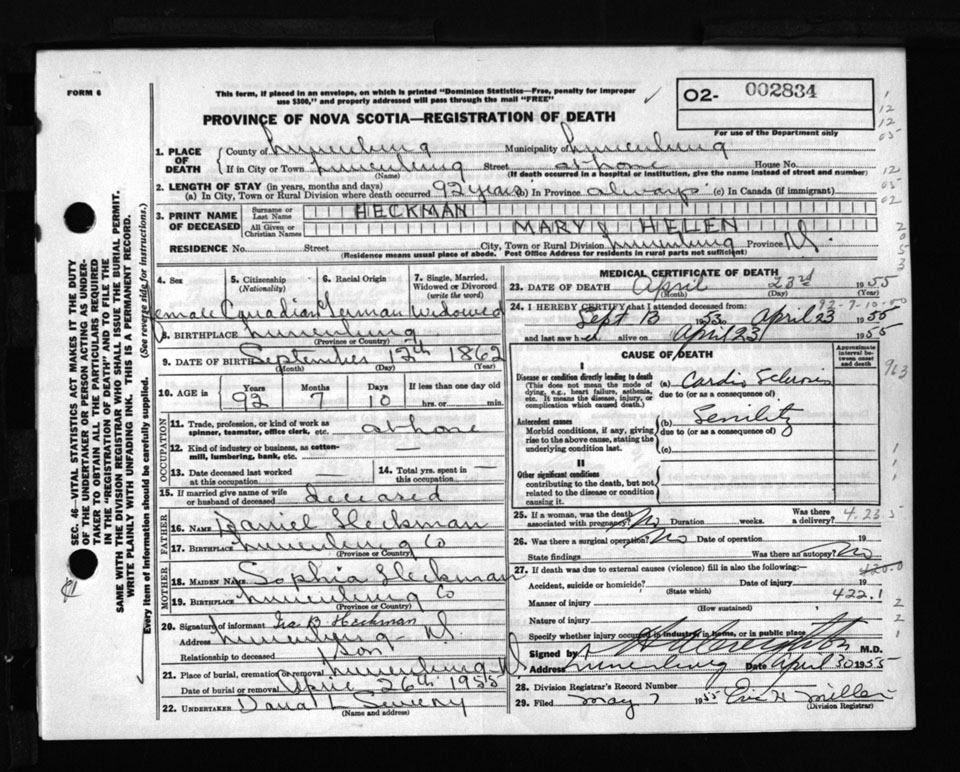 FORM 6
This form, if placed in an envelope, on which is printed "Dominion Statistics—Free, penalty for improper
use $300," and properly addressed will pass through the mail "FREE"
O2- 002834
PROVINCE OF NOVA SCOTIA—REGISTRATION OF DEATH
For use of the Department only
1. PLACE OF DEATH
County of Lunenburg Municipality of Lunenburg
If in City or Town Lunenburg Street at home House No.
(Name) (If death occurred in a hospital or institution, give the name instead of street and number)
2. LENGTH OF STAY (in years, months and days)
(a) In City, Town or Rural Division where death occurred 92 years (b) In Province always (c) In Canada (if immigrant)
3. PRINT NAME OF DECEASED
Surname or Last Name HECKMAN
All Given or Christian Names MARY HELEN
RESIDENCE No. Street City, Town or Rural Division Lunenburg Province N.S.
(Residence means usual place of abode. Post Office Address for residents in rural parts not sufficient)
4. Sex 5. Citizenship (Nationality) 6. Racial Origin 7. Single, Married, Widowed or Divorced (write the word)
Female Canadian German Widowed
8. BIRTHPLACE Lunenburg
(Province or Country)
9. DATE OF BIRTH September 13th 1862
(Month) (Day) (Year)
10. AGE in Years Months Days If less than one day old
92 7 10 hrs. or min.
OCCUPATION
11. Trade, profession, or kind of work as spinner, teamster, office clerk, etc. at home
12. Kind of industry or business, as cotton-mill, lumbering, bank, etc. —
13. Date deceased last worked at this occupation — 14. Total yrs. spent in this occupation —
15. If married give name of wife or husband of deceased deceased
FATHER
16. NAME Daniel Heckman
17. BIRTHPLACE Lunenburg Co
(Province or Country)
MOTHER
18. MAIDEN NAME Sophia Heckman
19. BIRTHPLACE Lunenburg Co
(Province or Country)
20. Signature of informant Ira B. Heckman
Address Lunenburg N.S.
Relationship to deceased Son
21. Place of burial, cremation or removal Lunenburg N.S.
Date of burial or removal April 26th 1955
22. UNDERTAKER Dana L Sweeny
(Name and address)
MEDICAL CERTIFICATE OF DEATH
23. DATE OF DEATH April 23rd 1955
(Month) (Day) (Year)
92-7-10-00
24. I HEREBY CERTIFY that I attended deceased from:
Sept 13 1953 to April 23 1955
and last saw her alive on April 23 1955
CAUSE OF DEATH
Approximate interval between onset and death
I
Disease or condition directly leading to death
(This does not mean the mode of dying, e.g., heart failure, asthenia, etc. It means the disease, injury, or complication which caused death.)
(a) Cardio Sclerosis
due to (or as a consequence of)
Antecedent causes
Morbid conditions, if any, giving rise to the above cause, stating the underlying condition last.
(b) Senility
due to (or as a consequence of)
(c)
II
Other significant conditions
contributing to the death, but not related to the disease or condition causing it.
25. If a woman, was the death associated with pregnancy? No Duration weeks. Was there a delivery?
4.23.5
26. Was there a surgical operation? No Date of operation 19
State findings Was there an autopsy? No
27. If death was due to external causes (violence) fill in also the following:—
420.0
Accident, suicide or homicide? Date of injury 19
(State which)
422.1
Manner of injury
(How sustained)
Nature of injury
Specify whether injury occurred in industry in home, or in public place
Signed by M.D.
Address Lunenburg Date April 30 1955
28. Division Registrar's Record Number
29. Filed May 7 1955
(Division Registrar)
SEC. 46—VITAL STATISTICS ACT MAKES IT THE DUTY
OF THE UNDERTAKER OR PERSON ACTING AS UNDER-
TAKER TO OBTAIN ALL THE PARTICULARS REQUIRED
IN THE "REGISTRATION OF DEATH" AND TO FILE THE
SAME WITH THE DIVISION REGISTRAR WHO SHALL ISSUE THE BURIAL PERMIT.
WRITE PLAINLY WITH UNFADING INK. THIS IS A PERMANENT RECORD.
Every item of information should be carefully supplied. (See reverse side for instructions.)
963